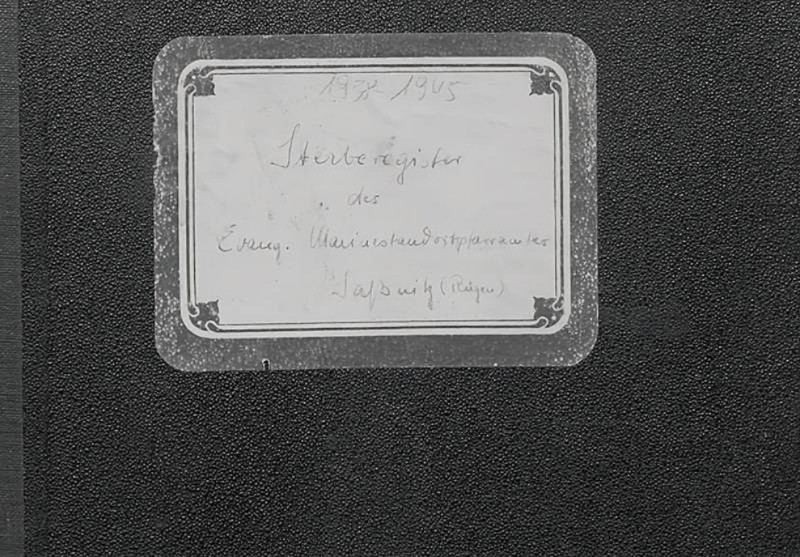 1938-1945
Sterberegister
des
Evang. Marinestandortpfarramtes
Saßnitz (Rügen)